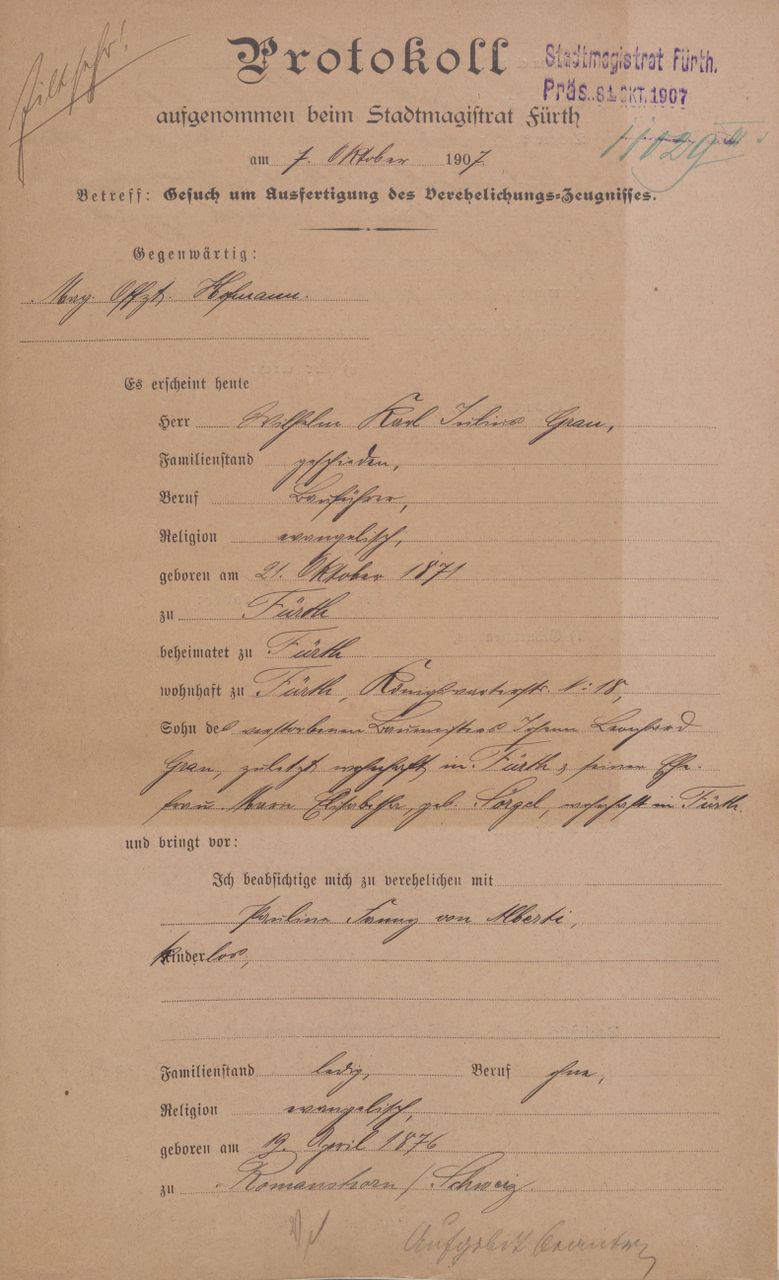 Eilt sehr!
Protokoll
Stadtmagistrat Fürth.
Präs. 8. OKT. 1907
aufgenommen beim Stadtmagistrat Fürth
11029 III
am 7. Oktober 1907.
Betreff: Gesuch um Ausfertigung des Verehelichungs-Zeugnisses.
Gegenwärtig:
Mag. Offzt. Hofmann.
Es erscheint heute
Herr Wilhelm Karl Julius Gran,
Familienstand geschieden,
Beruf Bauführer,
Religion evangelisch,
geboren am 21. Oktober 1871
zu Fürth
beheimatet zu Fürth
wohnhaft zu Fürth, Königswarterstr. N: 18,
Sohn des verstorbenen Baumeisters Johann Leonhard
Gran, zuletzt wohnhaft in Fürth & seiner Ehe-
frau Maria Elisabetha, geb. Sörgel, wohnhaft in Fürth.
und bringt vor:
Ich beabsichtige mich zu verehelichen mit
Pauline Fanny von Alberti,
kinderlos,
Familienstand ledig, Beruf ohne,
Religion evangelisch,
geboren am 19. April 1876
zu Romanshorn / Schweiz.
Aufgebot